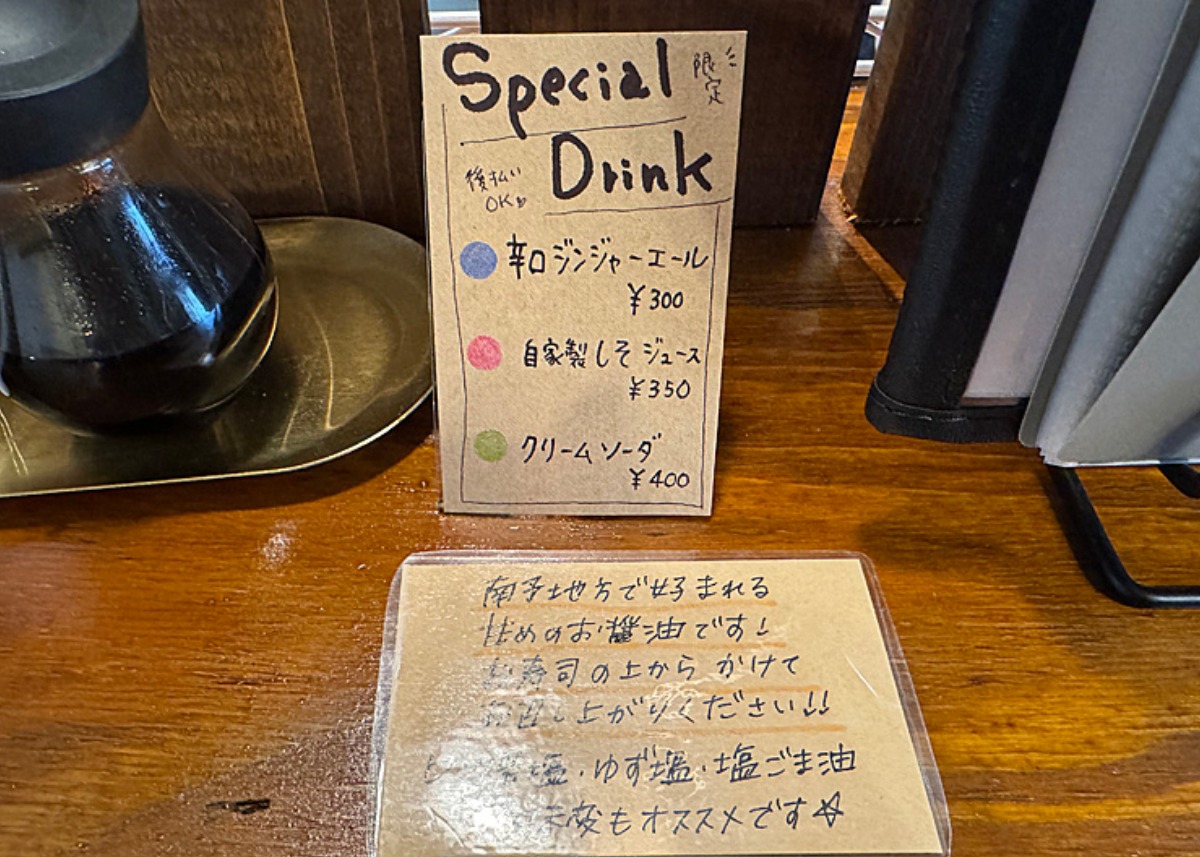 Special
限定
Drink
後払い
OK
辛口ジンジャーエール
¥300
自家製しそジュース
¥350
クリームソーダ
¥400
南予地方で好まれる
甘めのお醤油です!
お寿司の上からかけて
お召し上がりください!!
塩・ゆず塩・塩ごま油
もオススメです☆